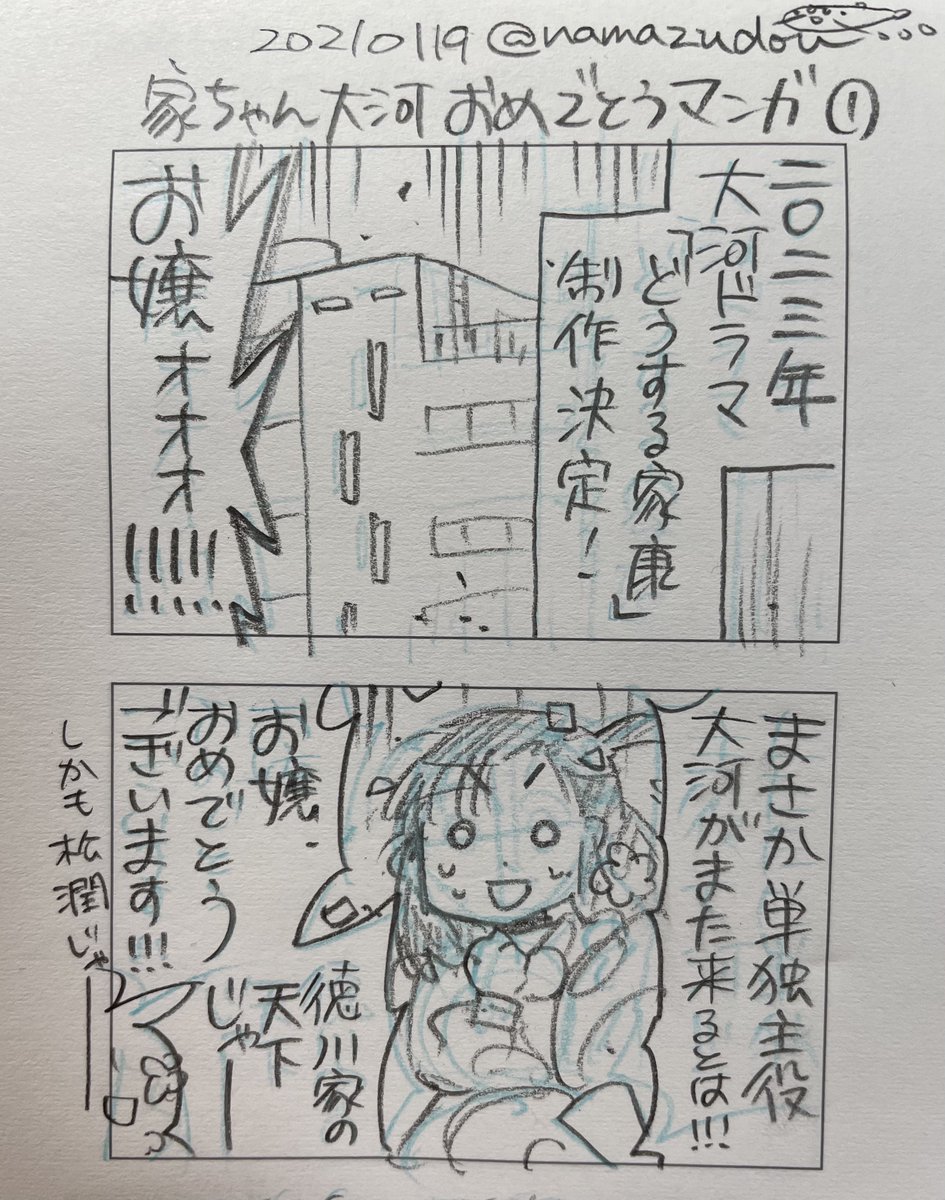 20210119 @namazudou
家ちゃん大河おめでとうマンガ①
二〇二三年
大河ドラマ
「どうする家康」
制作決定!
お嬢ォォォ!!!!!
まさか単独主役
大河がまた来るとは!!!
お嬢
おめでとう
ございます!!!
徳川家の
天下
じゃー
しかも松潤じゃー